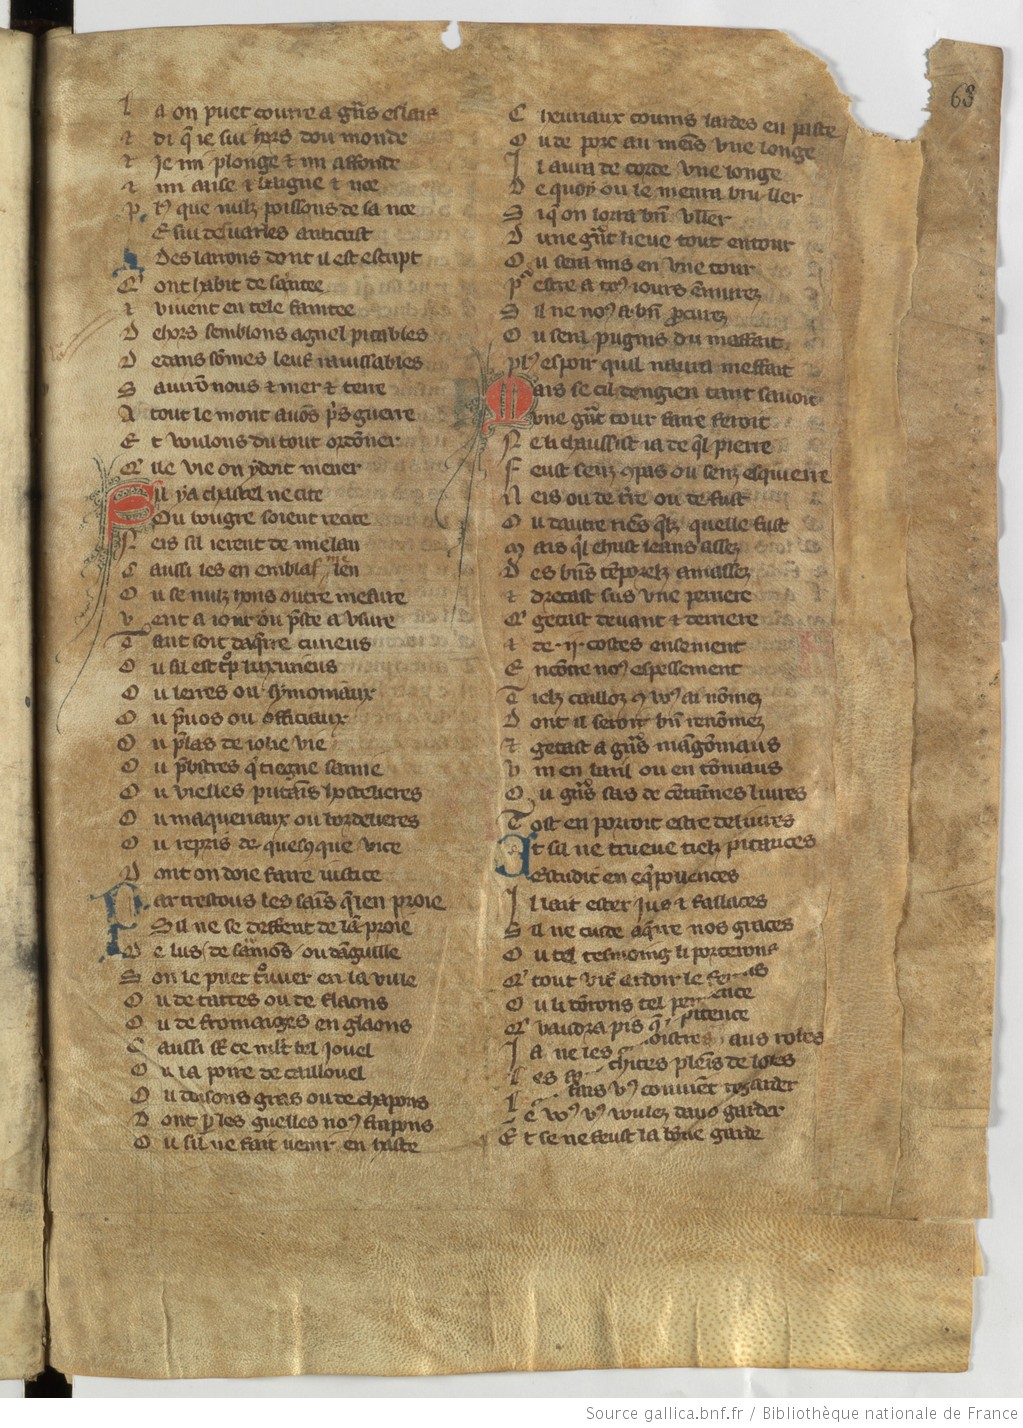 63
L a on puet courre a gñs eslais
z di q̃ ie sui hors dou monde
z Je mi plonge z mi affonde
z mi aise z baigne z noe
p lꝰ que nulz poissons de sa noe
E sui des varles anticrist
Des larrons dont il est escript
Q̃ ont habit de saītee
z viuent en tele faintee
D ehors semblons agnel pitables
D edans sōmes leus rauissables
S auirō nous z mer z terre
A tout le mont auōs pͥs guerre
E t voulons du tout ordōner
Q̃ ue vie on y doit mener
Sil y a chastel ne cite
Ou bougre soient recite
N eis sil ierent de milan
C aussi les en
O u se nulz hons outre mesure
V ent a iour ou p̃ste a vsure
T ant soit daq̃rre curieus
O u sil est tͦp luxurieus
O u lerres ou symoniaux
O u p̃uos ou officiaux
O u p̃las de iolie vie
O u p̃bstres q̃ tiegne samie
O u vielles putaīs hostelieres
O u maqueriaux ou bordelieres
O u repris de quelq̃que vice
D ont on doie faire iustice
Par trestous les saīs q̃ len proie
Sil ne se deffent de lāproie
D e lus de saumōs ou dāguille
S on le puet tͦuuer en la ville
O u de tartes ou de flaons
O u de fromaiges en glaons
C aussi est ce mlt bel iouel
O u la poire de caillouel
O u doisons gras ou de chapons
D ont p les guelles noꝰ frapons
O u sil ne fait venir en haste
C heuriaux counis lardes en paste
O u de porc au meīs vne longe
I l aura de corde vne longe
D e quoy on le menra bruller
S i q̃ on lorra bñ vller
D une gñt lieue tout entour
O u sera mis en vne tour
P estre a toꝰ iours ēmurez
S il ne noꝰ a bñ ꝓcurez
O u sera pugnis du meffait
plꝰ espoir quil naura meffait
Mais se cil dengien tant sauoit
Vne gñt tour faire feroit
N e li chaussist ia de q̃l pierre
F eust senz ꝯpas ou senz esquierre
N eis ou de t̃re ou de fust
O u dautre riēs q̃lz quelle fust
M ais q̃l eust leans assez
D es biñs tēporelz amassez
z drecast sus vne perriere
Q̃ gecast deuant z derriere
z de .ij. costes ensement
E ncōtre noꝰ espessement
T ielz caillox ꝯ voꝰ ai nōmez
D ont il seroit bñ renōmez
z gecast a gñs māgōniaus
V in en baril ou en tōniaus
O u gñs sas de cētaīnes liures
T ost en porroit estre deliures
Et sil ne trueue tielz pitances
estudit en eq̃pouences
I l lait ester jus z fallaces
S il ne cuide aq̃rre nos graces
O u tel tesmoing li porterons
Q̃ tout vif ardoir le ferons
O u li dōrons tel penitence
Q̃ vaudra pis q̃ pitence
I a ne les aus robes
L es plēis de lobes
fais vꝰ couuiēt regarder
z voꝰ vꝰ voulez dauꝰ garder
E t se ne feust la bōne garde